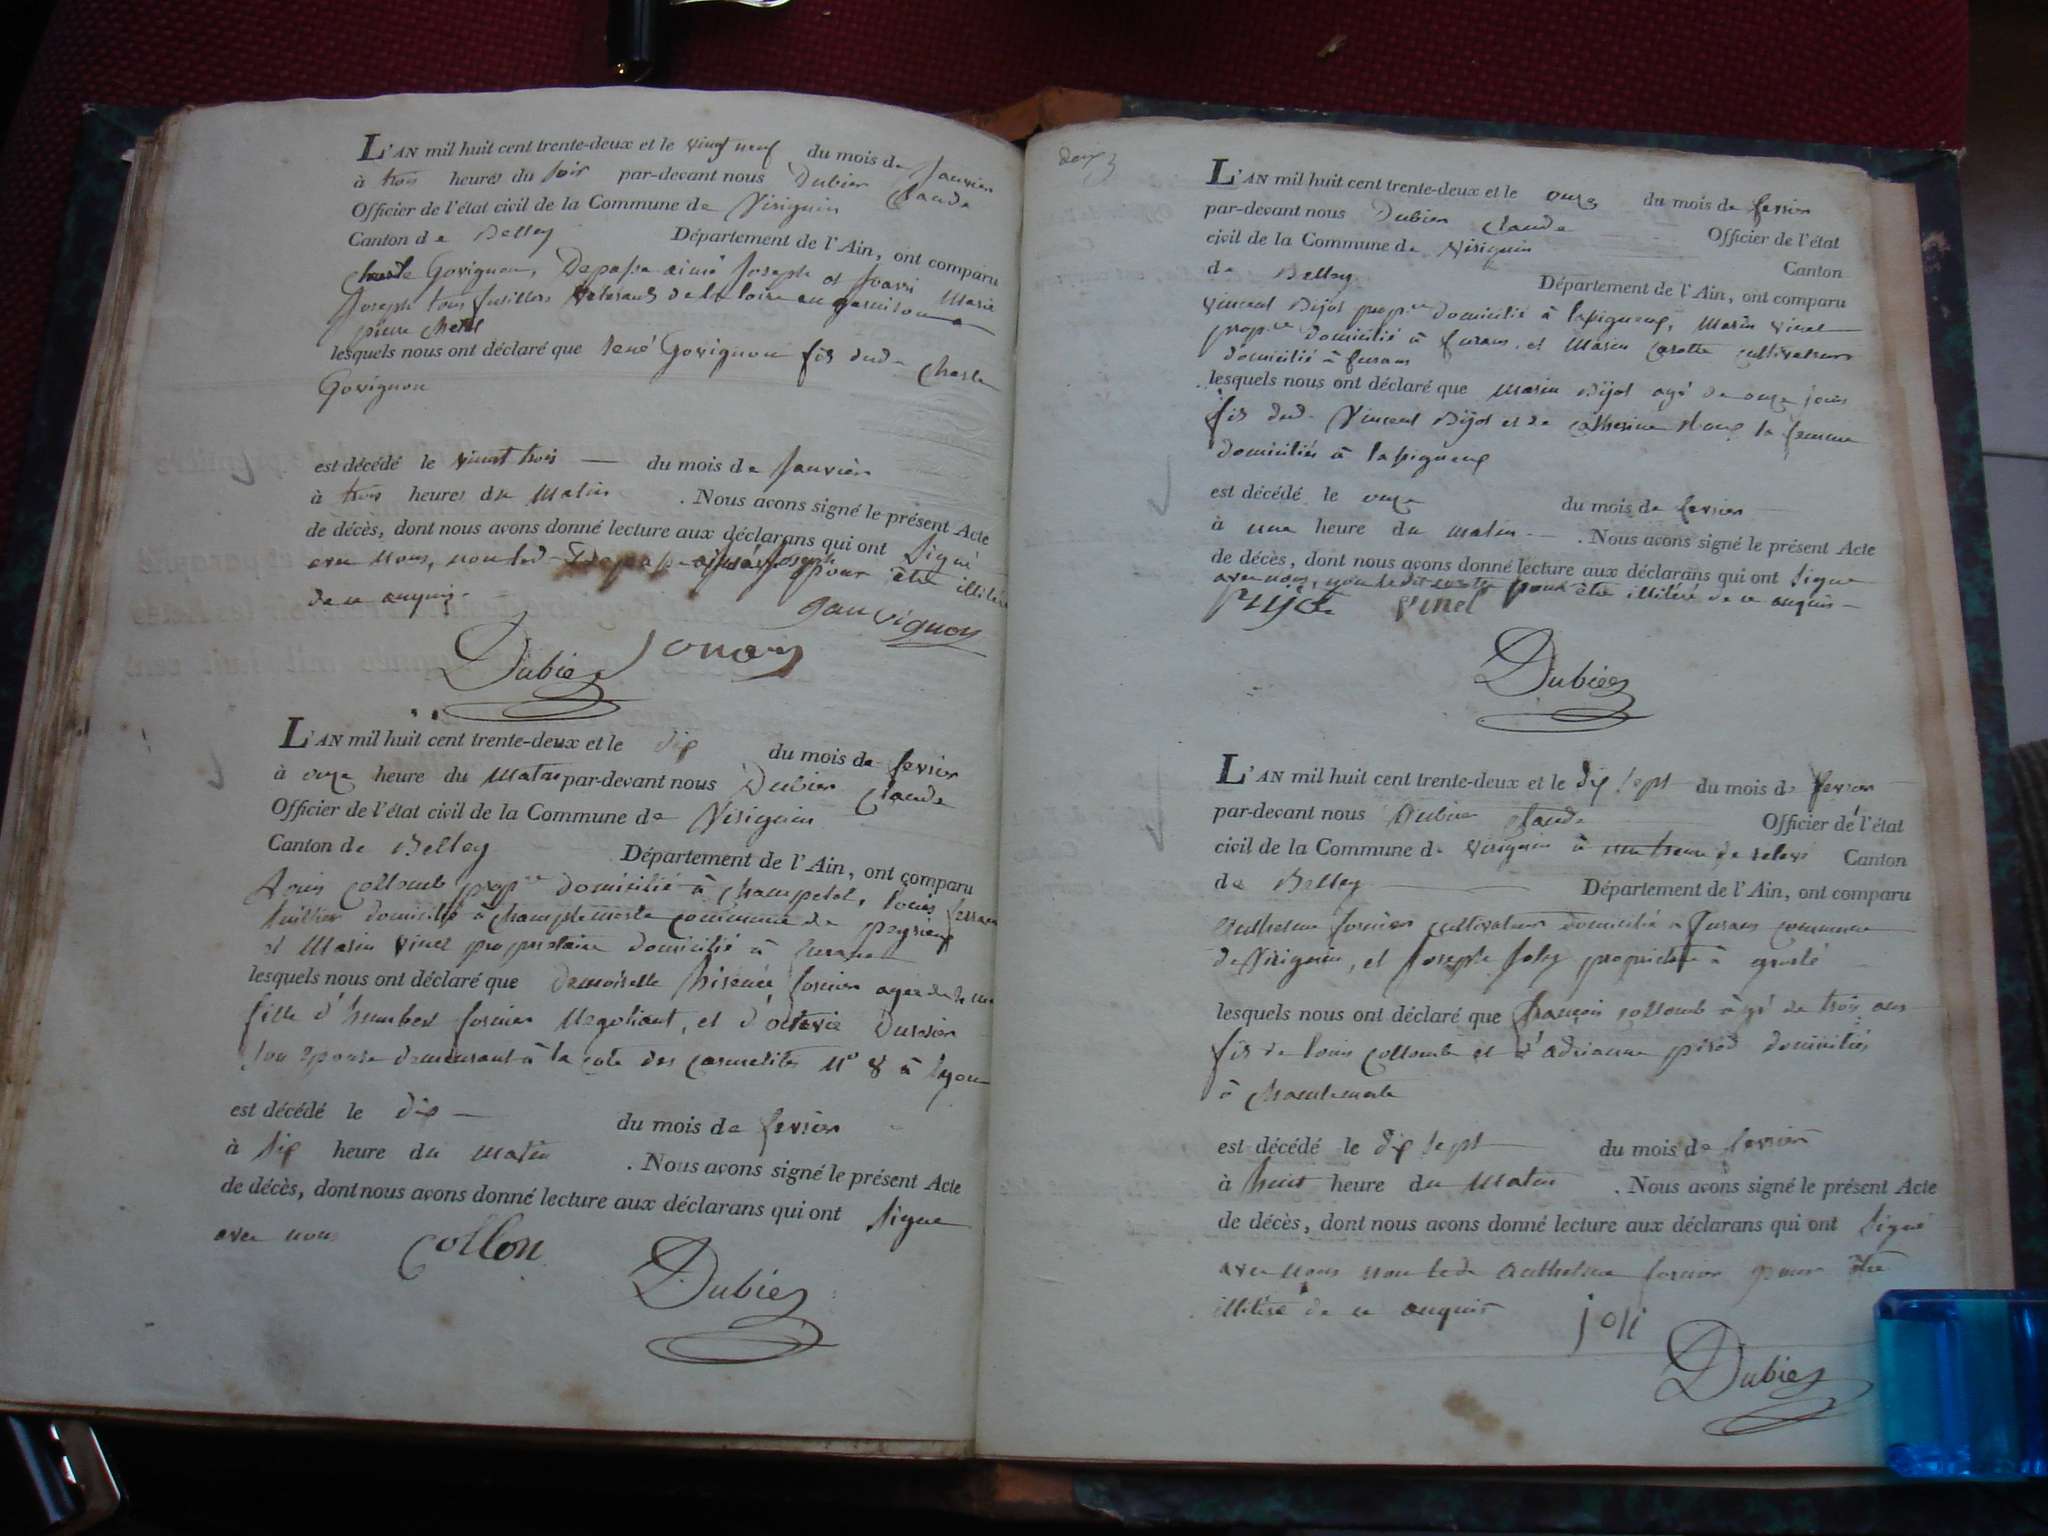 L'AN mil huit cent trente-deux et le vingt neuf du mois de Janvier
à trois heures du soir par-devant nous Dubier Claude
Officier de l'état civil de la Commune de Virignin
Canton de Belley Département de l'Ain, ont comparu
Govignon, Joseph et
Joseph tous fusillers veterants de la loire en garnison a
pierre chatel
lesquels nous ont déclaré que René Govignon fis dud. Charle
Govignon
est décédé le vingt trois du mois de Janvier
à trois heures du Matin . Nous avons signé le présent Acte
de décès, dont nous avons donné lecture aux déclarans qui ont Signé
avec nous, non led joseph pour être illiteré
de ce enquis.
gauvignon
Dubier
L'AN mil huit cent trente-deux et le dix du mois de fevrier
à onze heure du Matin par-devant nous Dubier Claude
Officier de l'état civil de la Commune de Virignin
Canton de Belley Département de l'Ain, ont comparu
Louis Collomb prop.re domicilié à Champetel, louis
domicilié à commune de peyrieux
et Marin vinet proprietaire domicilié à furans
lesquels nous ont déclaré que demoiselle fornier agee de
fille d'humbert fornier Negotiant, et d'octavie
son epouse demeurant à la cote des carmelites N° 8 à Lyon
est décédé le dix du mois de fevrier
à six heure du matin . Nous avons signé le présent Acte
de décès, dont nous avons donné lecture aux déclarans qui ont Signé
avec nous
Collon
Dubier
L'AN mil huit cent trente-deux et le onze du mois de fevrier
par-devant nous Dubier Claude Officier de l'état
civil de la Commune de Virignin Canton
de Belley Département de l'Ain, ont comparu
vincent Bijot prop.re domicilié à lassigneux, Marin vinet
prop.re domicilié à furans, et Marin cultivateur
domicilié à furans
lesquels nous ont déclaré que Marin Bijot agé de onze jours
fis dud. Vincent Bijot et de catherine la femme
domiciliés à lassigneux
est décédé le onze du mois de fevrier
à une heure du matin . Nous avons signé le présent Acte
de décès, dont nous avons donné lecture aux déclarans qui ont Signé
avec nous, non le dit pour être illiteré de ce enquis
vinet
Dubier
L'AN mil huit cent trente-deux et le dix sept du mois de fevrier
par-devant nous Dubier Claude Officier de l'état
civil de la Commune de Virignin à une heure de relevé Canton
de Belley Département de l'Ain, ont comparu
Anthelme fornier cultivateur domicilié a furans commune
de Virignin, et Joseph Joly proprietaire à
lesquels nous ont déclaré que françois collomb âgé de trois ans
fis de louis collomb et d'adrianne pirod domiciliés
à
est décédé le dix sept du mois de fevrier
à huit heure du Matin . Nous avons signé le présent Acte
de décès, dont nous avons donné lecture aux déclarans qui ont Signé
avec nous non led. Anthelme fornier pour être
illiteré de ce enquis
joli
Dubier